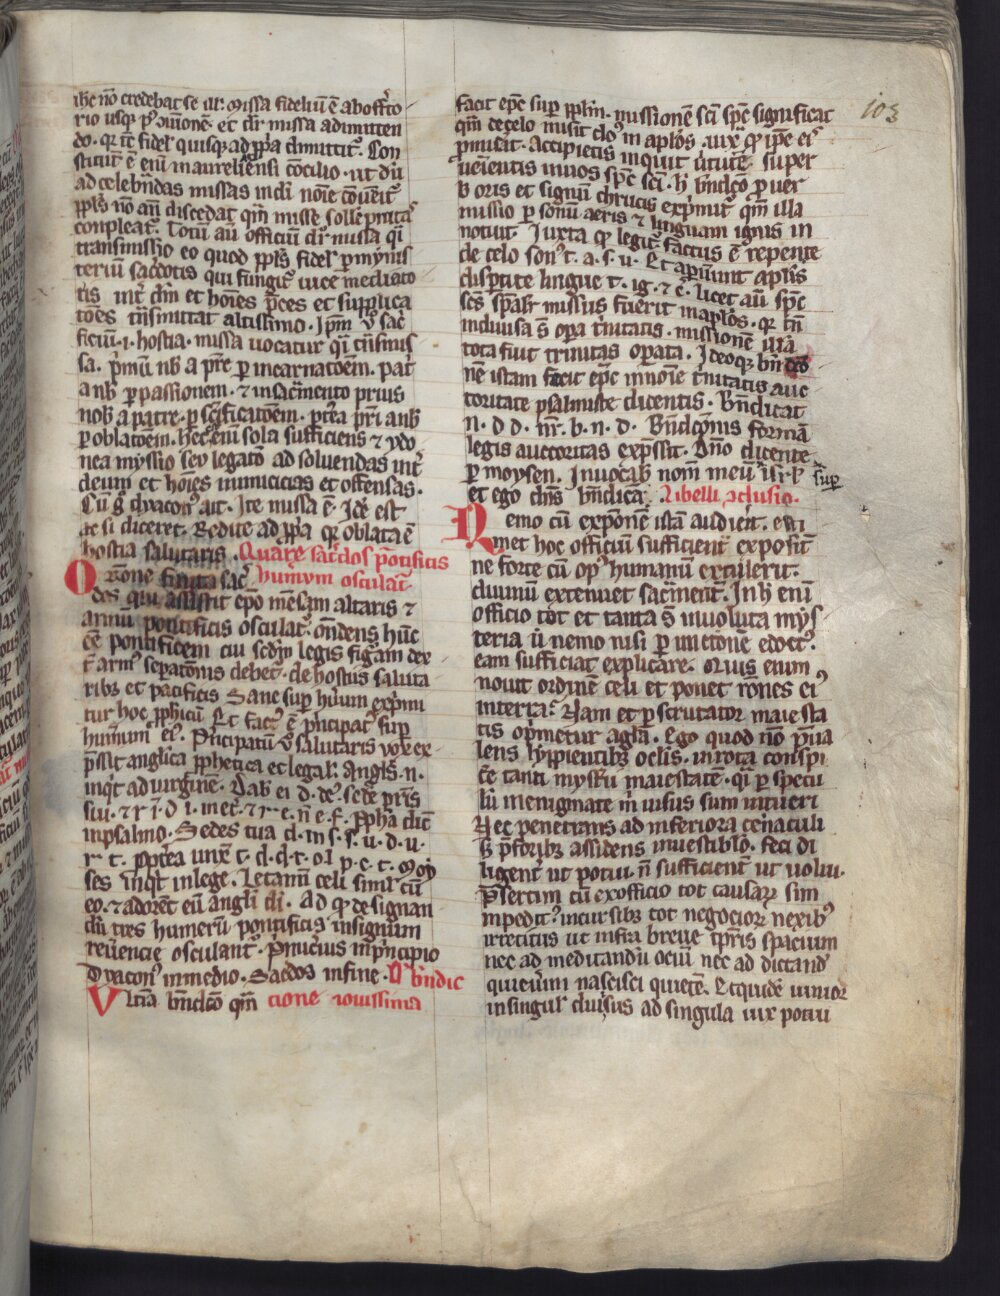 ihc nō credebat se illi. Missa fideliū ē ab offr̄to
rio usqȝ p̄ ꝯm̄ionē. et dr̄ missa a dimitten
do. qꝛ tc̄ fidel' quisqȝ ad ꝓpͥa dimittitͬ. Con
stitutͫ ē eniͫ in aurelienͣsi cōcilio. ut dū
ad celebn̄das missas in dn̄i noīe cōueitͬ
ppl̄s nō an̄ discedat qͣm misse sollēpnitas
compleatͬ. Totū aū officiū dr̄ missa qͣi
transmissio eo quod ppl̄s fidel' ꝑ mynis
teriū sacͤdotis qui fungitͬ uice mediato
ris intͬ dm̄ et hoīes p̄ces et supplica
tōes tn̄smittat altissimo. Ipm̄ vͦ sacͥ
ficiū .i. hostia. missa uocatur qͣi tn̄smis
sa. pͥmū nb̄ a pr̄e ꝑ incarnatōem. patͥ
a nb̄ ꝑ passionem. ⁊ in sacͣmento prius
nob̄ a patre. ꝑ sc̄ificatōem. pͦtea pr̄i a nb̄
ꝑ oblatōem. Hec eni sola sufficiens ⁊ ydo
nea myssio seu legatō ad soluendas intͬ
deum et hoīes inimicicias et offensas.
Cū g̊ dyaconꝰ ait. Ite missa ē. Idē est
ac si diceret. Redite ad ꝓpͥa qꝛ oblata ē
hostia salutaris. Quare sac̄dos pōtificis
Orōne finita sac̄ hum̄um osculatͬ
dos qui assistit ep̄o in mēsam altaris ⁊
armū pontificis osculatͬ. on̄dens hūc
ēē pontificem cui sc̄dm legis figͣam dex
tͬ armꝰ sepatōnis debetͬ. de hostiis saluta
ribȝ et pacificis Sane suꝑ huͫum expͥmi
tur hoc ꝓphicū Et factꝰ ē pͥncipatꝰ suꝑ
humͫum eiꝰ. Pͥncipatū vͦ salutaris uox ex
pͣssit anglica ꝓphetica et legal'. Angl's .n.
inqͥt ad uirginē. Dab' ei d. dͤ. sede pr̄is
sui. ⁊ r i. d i. in et. ⁊ r. e. n̄ e. f. Ꝓpha dīc
in psalmo. Sedes tua d. in s. s. u. d. u.
r. t. ꝓpͭea unx̄ t. d. d. t. o l p. c. t. Moy
ses inqͥt in lege. Letamī celi simͥl cū
eo. ⁊ adorēt eū angl̄i di. Ad qͦ designan
dū tres humerū pontificis in signum
reuͤencie osculantͬ. Pͥmicͥius in pͥncipio
Dyaconꝰ in medio. Sac̄dos in fine. D̄ bn̄dic
Vltīa bn̄dcō qͣm tione nouissima
facit ep̄c suꝑ pplm̄. missionē sc̄i spc̄ significat
qͣm de celo misit dn̄s in apl̄os. iuxͣ qͦ ip̄e eiꝰ
ꝓmisit. Accipietis inquit uͥtutē. super
ueīentis in uos spc̄ sc̄i. H' bn̄dcō ꝑ uer
b oris et signū chrucis expͥmitͬ qͣm illa
missio ꝑ sonū aeris ⁊ linguam ignis in
notuit. Iuxta qͦ legitͬ. Factus ē repente
de celo sonꝰ t. a. s. u. Et apparūunt apl̄is
disꝑtite lingue t. ig. ⁊ c̄. licet aū spc̄
sc̄s spālr̄ missus fuerit in apl̄os. qꝛ tn̄
indiuisa sͭ opͣa tͥnitatis. missionē illā
tota fiut trinitas opata. Ideoqȝ bn̄dcō
nē istam facit ep̄c in noīe tͥnitatis auc
toritate psalmiste dicentis. Bn̄dicat
n. d d. nr̄. b. n. d. Bn̄dcōnis formā
legis auctoritas expͣssit. Dn̄o dicente
ꝑ moysen. Inuocab' nom̄ meū isr̄l suꝑ
et ego dn̄s bn̄dicā. Libelli ꝯclusio.
Nemo cū exponē istā audierit. esti
met hoc officiū sufficientͬ expositͫ
ne forte cū opꝰ humanū extulerit.
diuinū extenuet sacͣmentͫ. In h' enī
officio tot et tanta sͭ inuoluta mys
teria ut nemo nisi ꝑ unctōnē edoctꝰ.
eam sufficiat explicare. Quis enim
nouit ordinē celi et ponet rōnes eiꝰ
in terra? Nam et ꝑscrutator maiesta
tis opͥmetur a glͣia. Ego quod nō pͥua
lens lyppientibȝ oclis. in rota conspi
ce tanti mystͥii maiestatē. qͣi ꝑ specu
lū in enigmate in uisus sum intueri
Nec penetrans ad inferiora cenaculi
sȝ pͥ foribȝ assidens in uestibl̄o. feci di
ligentͬ ut potui. nō sufficientͬ ut uolui.
Presertim cū ex officio tot causarͫ sim
inpeditꝰ incursibȝ tot negociorͫ nexibȝ
irretitus ut infra breue tpͦris spacium
nec ad meditandū ociū nec ad dictand
quiuͤim nascisci quietē. Etqͥdē minor
in singulͥ diuisus ad singula uix potui
103